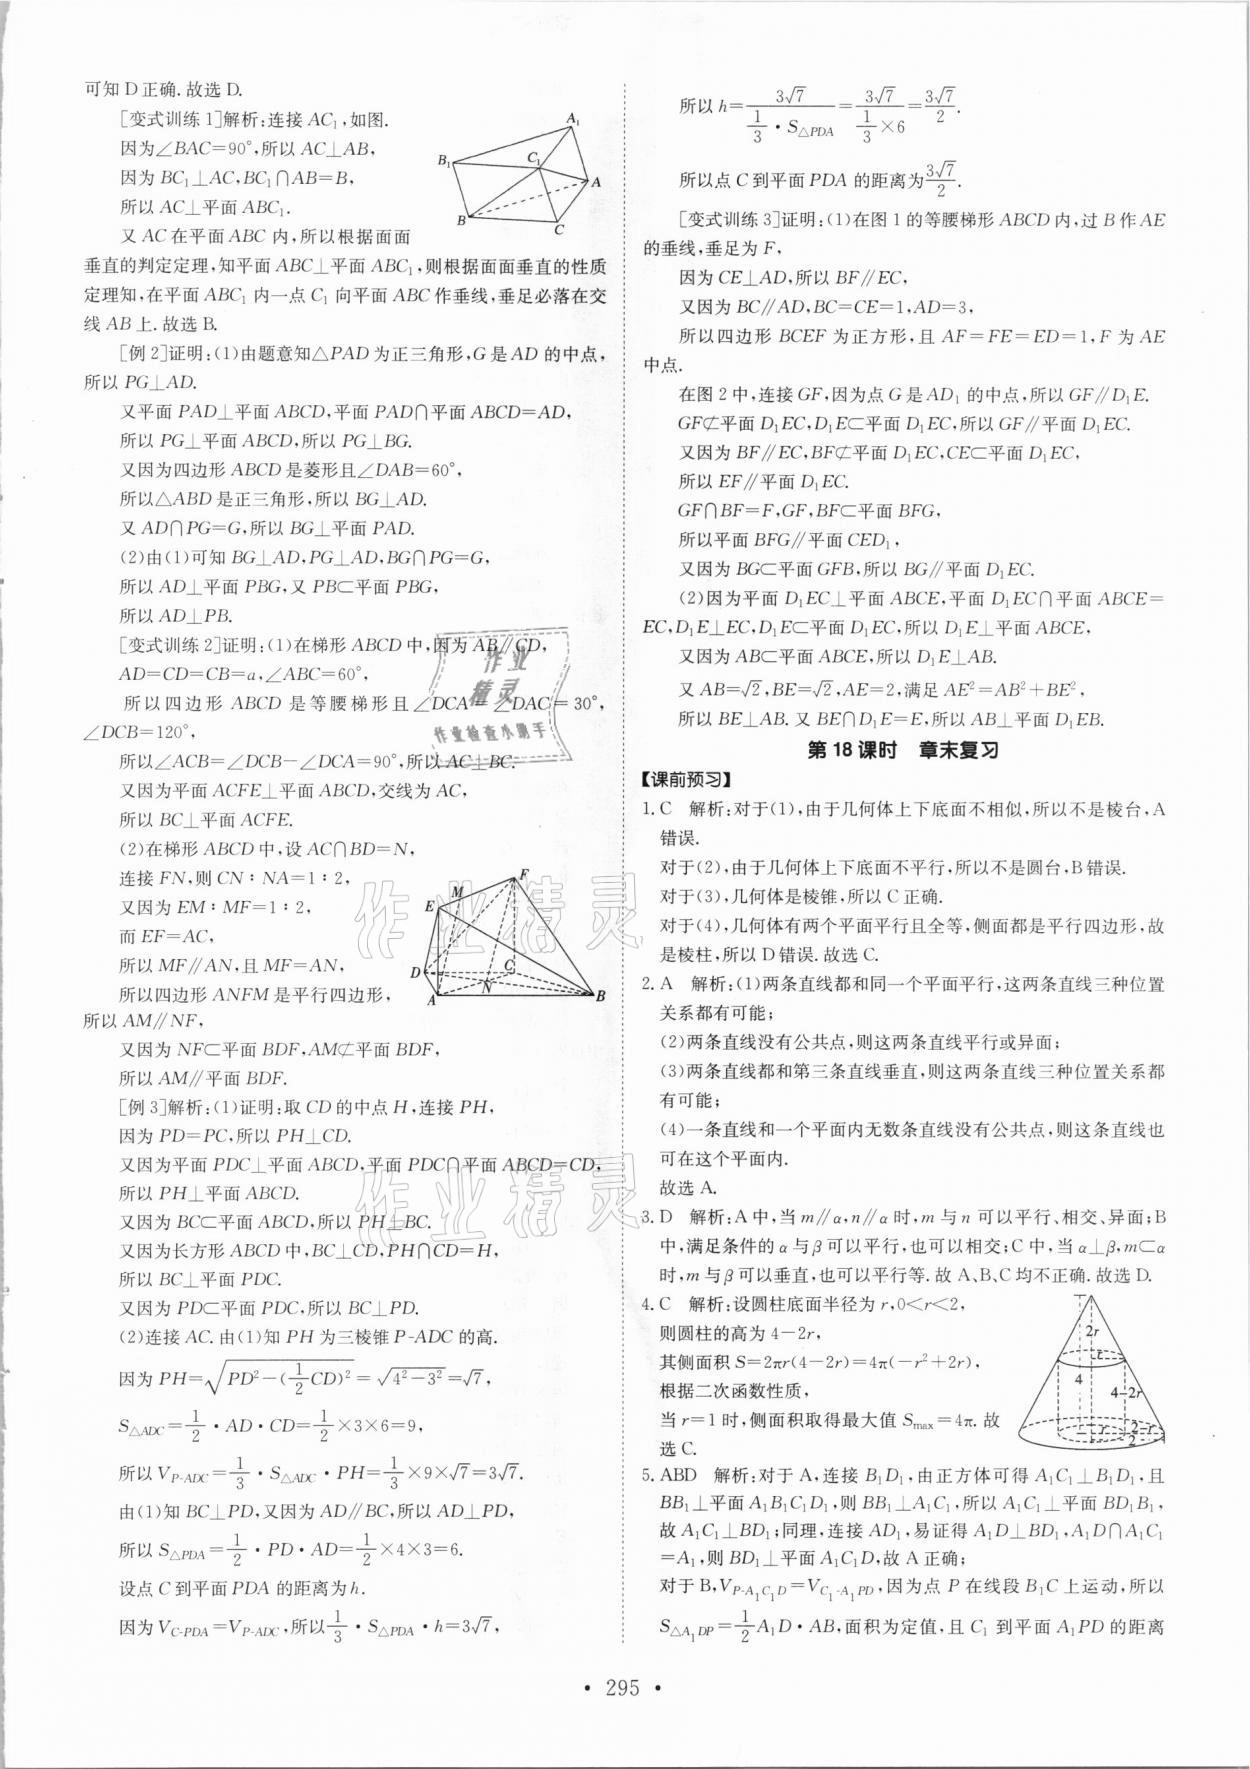 可知 D 正确.故选 D.
[变式训练1]解析:连接 AC₁,如图.
因为∠BAC=90°,所以 AC⊥AB,
因为 BC₁⊥AC,BC₁∩AB=B,
所以 AC⊥平面 ABC₁.
又 AC 在平面 ABC 内,所以根据面面
垂直的判定定理,知平面 ABC⊥平面 ABC₁,则根据面面垂直的性质
定理知,在平面 ABC₁ 内一点 C₁ 向平面 ABC 作垂线,垂足必落在交
线 AB 上.故选 B.
A₁
B₁
C₁
A
B
C
[例 2]证明:(1)由题意知△PAD 为正三角形,G 是 AD 的中点,
所以 PG⊥AD.
又平面 PAD⊥平面 ABCD,平面 PAD∩平面 ABCD=AD,
所以 PG⊥平面 ABCD,所以 PG⊥BG.
又因为四边形 ABCD 是菱形且∠DAB=60°,
所以△ABD 是正三角形,所以 BG⊥AD.
又 AD∩PG=G,所以 BG⊥平面 PAD.
(2)由(1)可知 BG⊥AD,PG⊥AD,BG∩PG=G,
所以 AD⊥平面 PBG,又 PB⊂平面 PBG,
所以 AD⊥PB.
[变式训练2]证明:(1)在梯形 ABCD 中,因为 AB∥CD,
AD=CD=CB=a,∠ABC=60°,
所以四边形 ABCD 是等腰梯形且∠DCA=∠DAC=30°,
∠DCB=120°,
所以∠ACB=∠DCB−∠DCA=90°,所以 AC⊥BC.
又因为平面 ACFE⊥平面 ABCD,交线为 AC,
所以 BC⊥平面 ACFE.
(2)在梯形 ABCD 中,设 AC∩BD=N,
连接 FN,则 CN∶NA=1∶2,
又因为 EM∶MF=1∶2,
而 EF=AC,
所以 MF∥AN,且 MF=AN,
所以四边形 ANFM 是平行四边形,
所以 AM∥NF,
F
M
E
D
C
N
A
B
又因为 NF⊂平面 BDF,AM⊄平面 BDF,
所以 AM∥平面 BDF.
[例 3]解析:(1)证明:取 CD 的中点 H,连接 PH,
因为 PD=PC,所以 PH⊥CD.
又因为平面 PDC⊥平面 ABCD,平面 PDC∩平面 ABCD=CD,
所以 PH⊥平面 ABCD.
又因为 BC⊂平面 ABCD,所以 PH⊥BC.
又因为长方形 ABCD 中,BC⊥CD,PH∩CD=H,
所以 BC⊥平面 PDC.
又因为 PD⊂平面 PDC,所以 BC⊥PD.
(2)连接 AC.由(1)知 PH 为三棱锥 P-ADC 的高.
因为 PH=√(PD²−(1/2 CD)²)=√(4²−3²)=√7,
S△ADC=1/2·AD·CD=1/2×3×6=9,
所以 V_P-ADC=1/3·S△ADC·PH=1/3×9×√7=3√7.
由(1)知 BC⊥PD,又因为 AD∥BC,所以 AD⊥PD,
所以 S△PDA=1/2·PD·AD=1/2×4×3=6.
设点 C 到平面 PDA 的距离为 h.
因为 V_C-PDA=V_P-ADC,所以 1/3·S△PDA·h=3√7,
所以 h=3√7/(1/3·S△PDA)=3√7/(1/3×6)=3√7/2.
所以点 C 到平面 PDA 的距离为 3√7/2.
[变式训练3]证明:(1)在图 1 的等腰梯形 ABCD 内,过 B 作 AE
的垂线,垂足为 F,
因为 CE⊥AD,所以 BF∥EC,
又因为 BC∥AD,BC=CE=1,AD=3,
所以四边形 BCEF 为正方形,且 AF=FE=ED=1,F 为 AE
中点.
在图 2 中,连接 GF,因为点 G 是 AD₁ 的中点,所以 GF∥D₁E.
GF⊄平面 D₁EC,D₁E⊂平面 D₁EC,所以 GF∥平面 D₁EC.
又因为 BF∥EC,BF⊄平面 D₁EC,CE⊂平面 D₁EC,
所以 EF∥平面 D₁EC.
GF∩BF=F,GF,BF⊂平面 BFG,
所以平面 BFG∥平面 CED₁,
又因为 BG⊂平面 GFB,所以 BG∥平面 D₁EC.
(2)因为平面 D₁EC⊥平面 ABCE,平面 D₁EC∩平面 ABCE=
EC,D₁E⊥EC,D₁E⊂平面 D₁EC,所以 D₁E⊥平面 ABCE,
又因为 AB⊂平面 ABCE,所以 D₁E⊥AB.
又 AB=√2,BE=√2,AE=2,满足 AE²=AB²+BE²,
所以 BE⊥AB.又 BE∩D₁E=E,所以 AB⊥平面 D₁EB.
第 18 课时 章末复习
【课前预习】
1.C 解析:对于(1),由于几何体上下底面不相似,所以不是棱台,A
错误.
对于(2),由于几何体上下底面不平行,所以不是圆台,B 错误.
对于(3),几何体是棱锥,所以 C 正确.
对于(4),几何体有两个平面平行且全等,侧面都是平行四边形,故
是棱柱,所以 D 错误.故选 C.
2.A 解析:(1)两条直线都和同一个平面平行,这两条直线三种位置
关系都有可能;
(2)两条直线没有公共点,则这两条直线平行或异面;
(3)两条直线都和第三条直线垂直,则这两条直线三种位置关系都
有可能;
(4)一条直线和一个平面内无数条直线没有公共点,则这条直线也
可在这个平面内.
故选 A.
3.D 解析:A 中,当 m∥α,n∥α 时,m 与 n 可以平行、相交、异面;B
中,满足条件的 α 与 β 可以平行,也可以相交;C 中,当 α⊥β,m⊂α
时,m 与 β 可以垂直,也可以平行等.故 A、B、C 均不正确.故选 D.
4.C 解析:设圆柱底面半径为 r,0<r<2,
则圆柱的高为 4−2r,
其侧面积 S=2πr(4−2r)=4π(−r²+2r),
根据二次函数性质,
当 r=1 时,侧面积取得最大值 Smax=4π.故
选 C.
2r
r
4
4−2r
r
2−r
2
5.ABD 解析:对于 A,连接 B₁D₁,由正方体可得 A₁C₁⊥B₁D₁,且
BB₁⊥平面 A₁B₁C₁D₁,则 BB₁⊥A₁C₁,所以 A₁C₁⊥平面 BD₁B₁,
故 A₁C₁⊥BD₁;同理,连接 AD₁,易证得 A₁D⊥BD₁,A₁D∩A₁C₁
=A₁,则 BD₁⊥平面 A₁C₁D,故 A 正确;
对于 B,V_P-A₁C₁D=V_C₁-A₁PD,因为点 P 在线段 B₁C 上运动,所以
S△A₁DP=1/2 A₁D·AB,面积为定值,且 C₁ 到平面 A₁PD 的距离
• 295 •
作业精灵
作业检查小助手
作业精灵
作业精灵